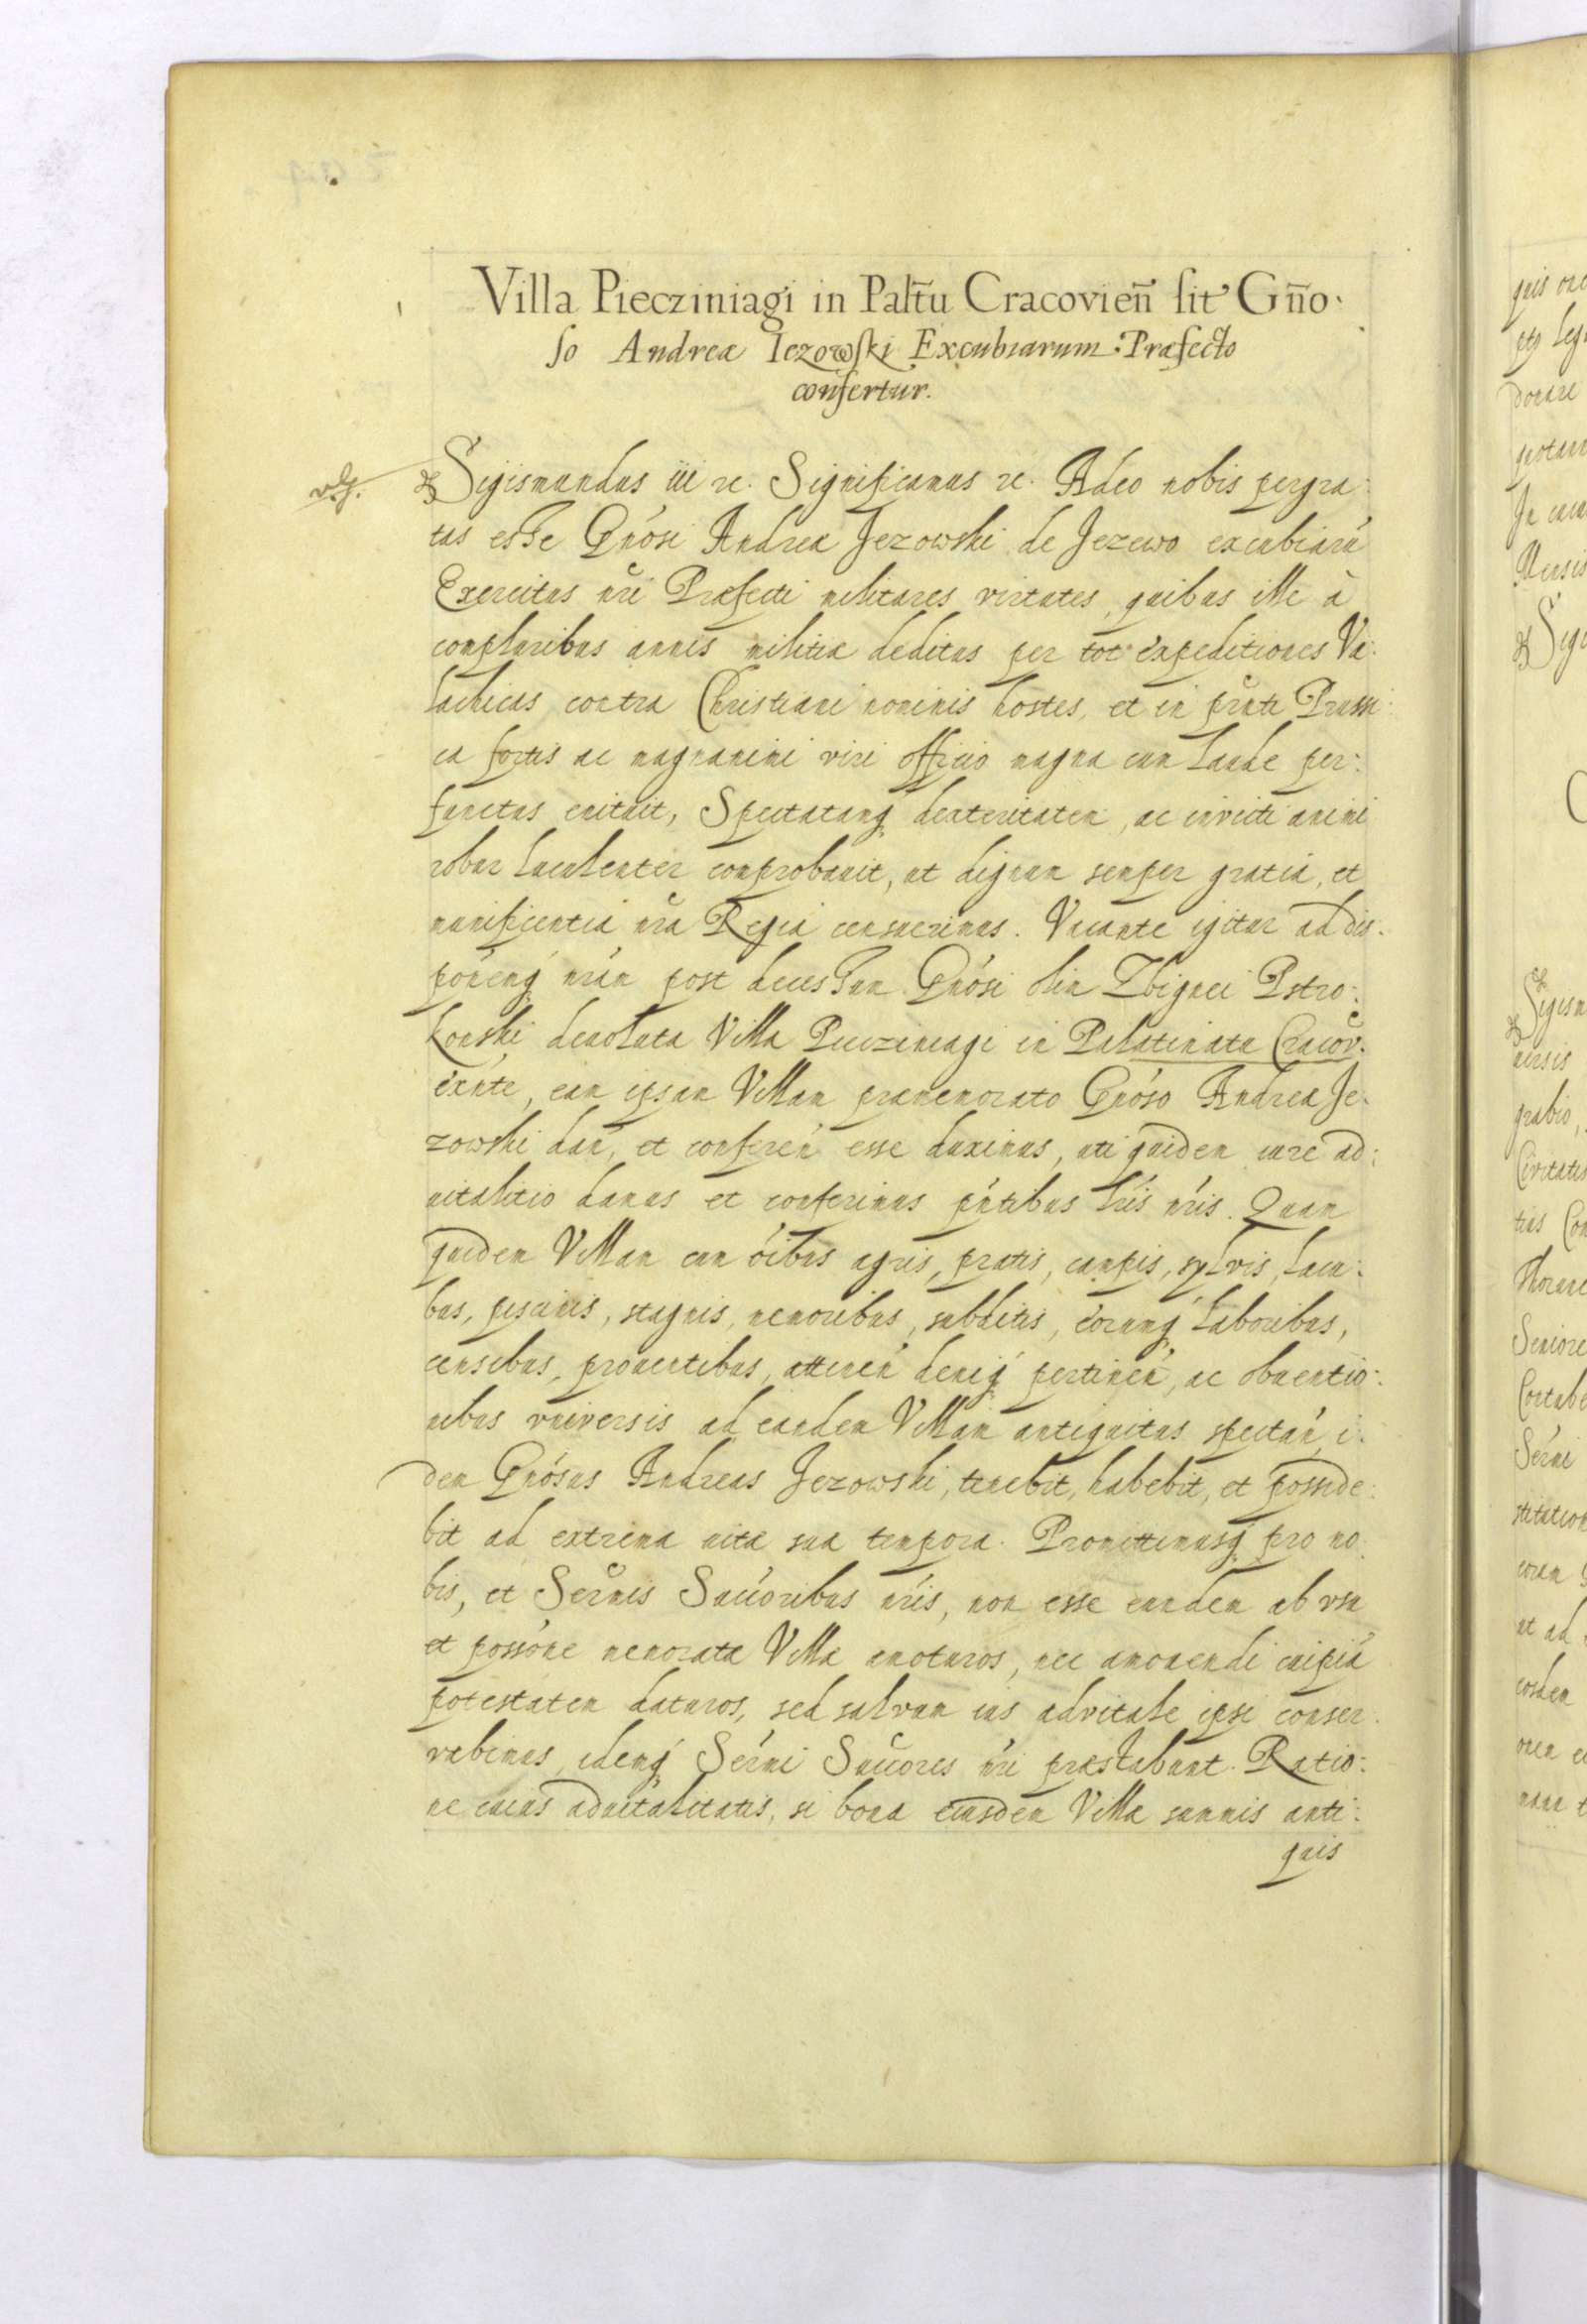 Villa Piecziniagi in Palt̃u Cracovień sit Gño·
so Andreæ Iezowski Excubiarum Præfecto
confertur.
Sigismundus iii etc. Significamus etc. Adeo nobis pergra:
tas esse Gnósi Andreæ Jezowski de Jezewo excubiarú
Exercitus nri Præfecti militares virtutes, quibus ille à
compluribus annis militiæ deditus per tot expeditiones Va:
lachicas contra Christiani nominis hostes, et in prnti Prussi:
ca fortis ac magnanimi viri officio magna cum laude per:
functus enituit, Spectatamq dexteritatem, ac invicti animi
robur luculenter comprobauit, ut dignum semper gratia, et
munificentia nra Regia censuerimus. Vacante igitur ad dis:
pónemq nrám post decessum Gnósi olim Zbignei Pstro:
konski deuoluta Villa Piecziniagi in Palatinatu Cracov:
exnte, eam ipsam Villam præmemorato Gnóso Andreæ Je:
zowski dań, et conferéń esse duximus, uti quidem iure ad:
uitalitio damus et conferimus pńtibus lris nris. Quam
quidem Villam cum óibus agris, pratis, campis, sylvis, lacu:
bus, piscinis, stagnis, nemoribus, subditis, eorumq laboribus,
censibus, prouentibus, attinéń deniq pertinéń, ac obuentio:
nibus vniversis ad eandem Villam antiquitus spectáń, i:
dem Gnósus Andreas Jezowski, tenebit, habebit, et posside:
bit ad extrema uitæ suæ tempora. Promittimusq pro no:
bis, et Sernis Succóribus nris, non esse eundem ab vsu
et possóne memoratæ Villæ amoturos, nec amouendi cuipiá
potestatem daturos, sed salvum ius advitale ipsi conser:
vabimus, idemq Serni Succores nri præstabunt. Ratio:
ne cuius aduitalitatis, si bona eiusdem Villæ summis anti:
quis